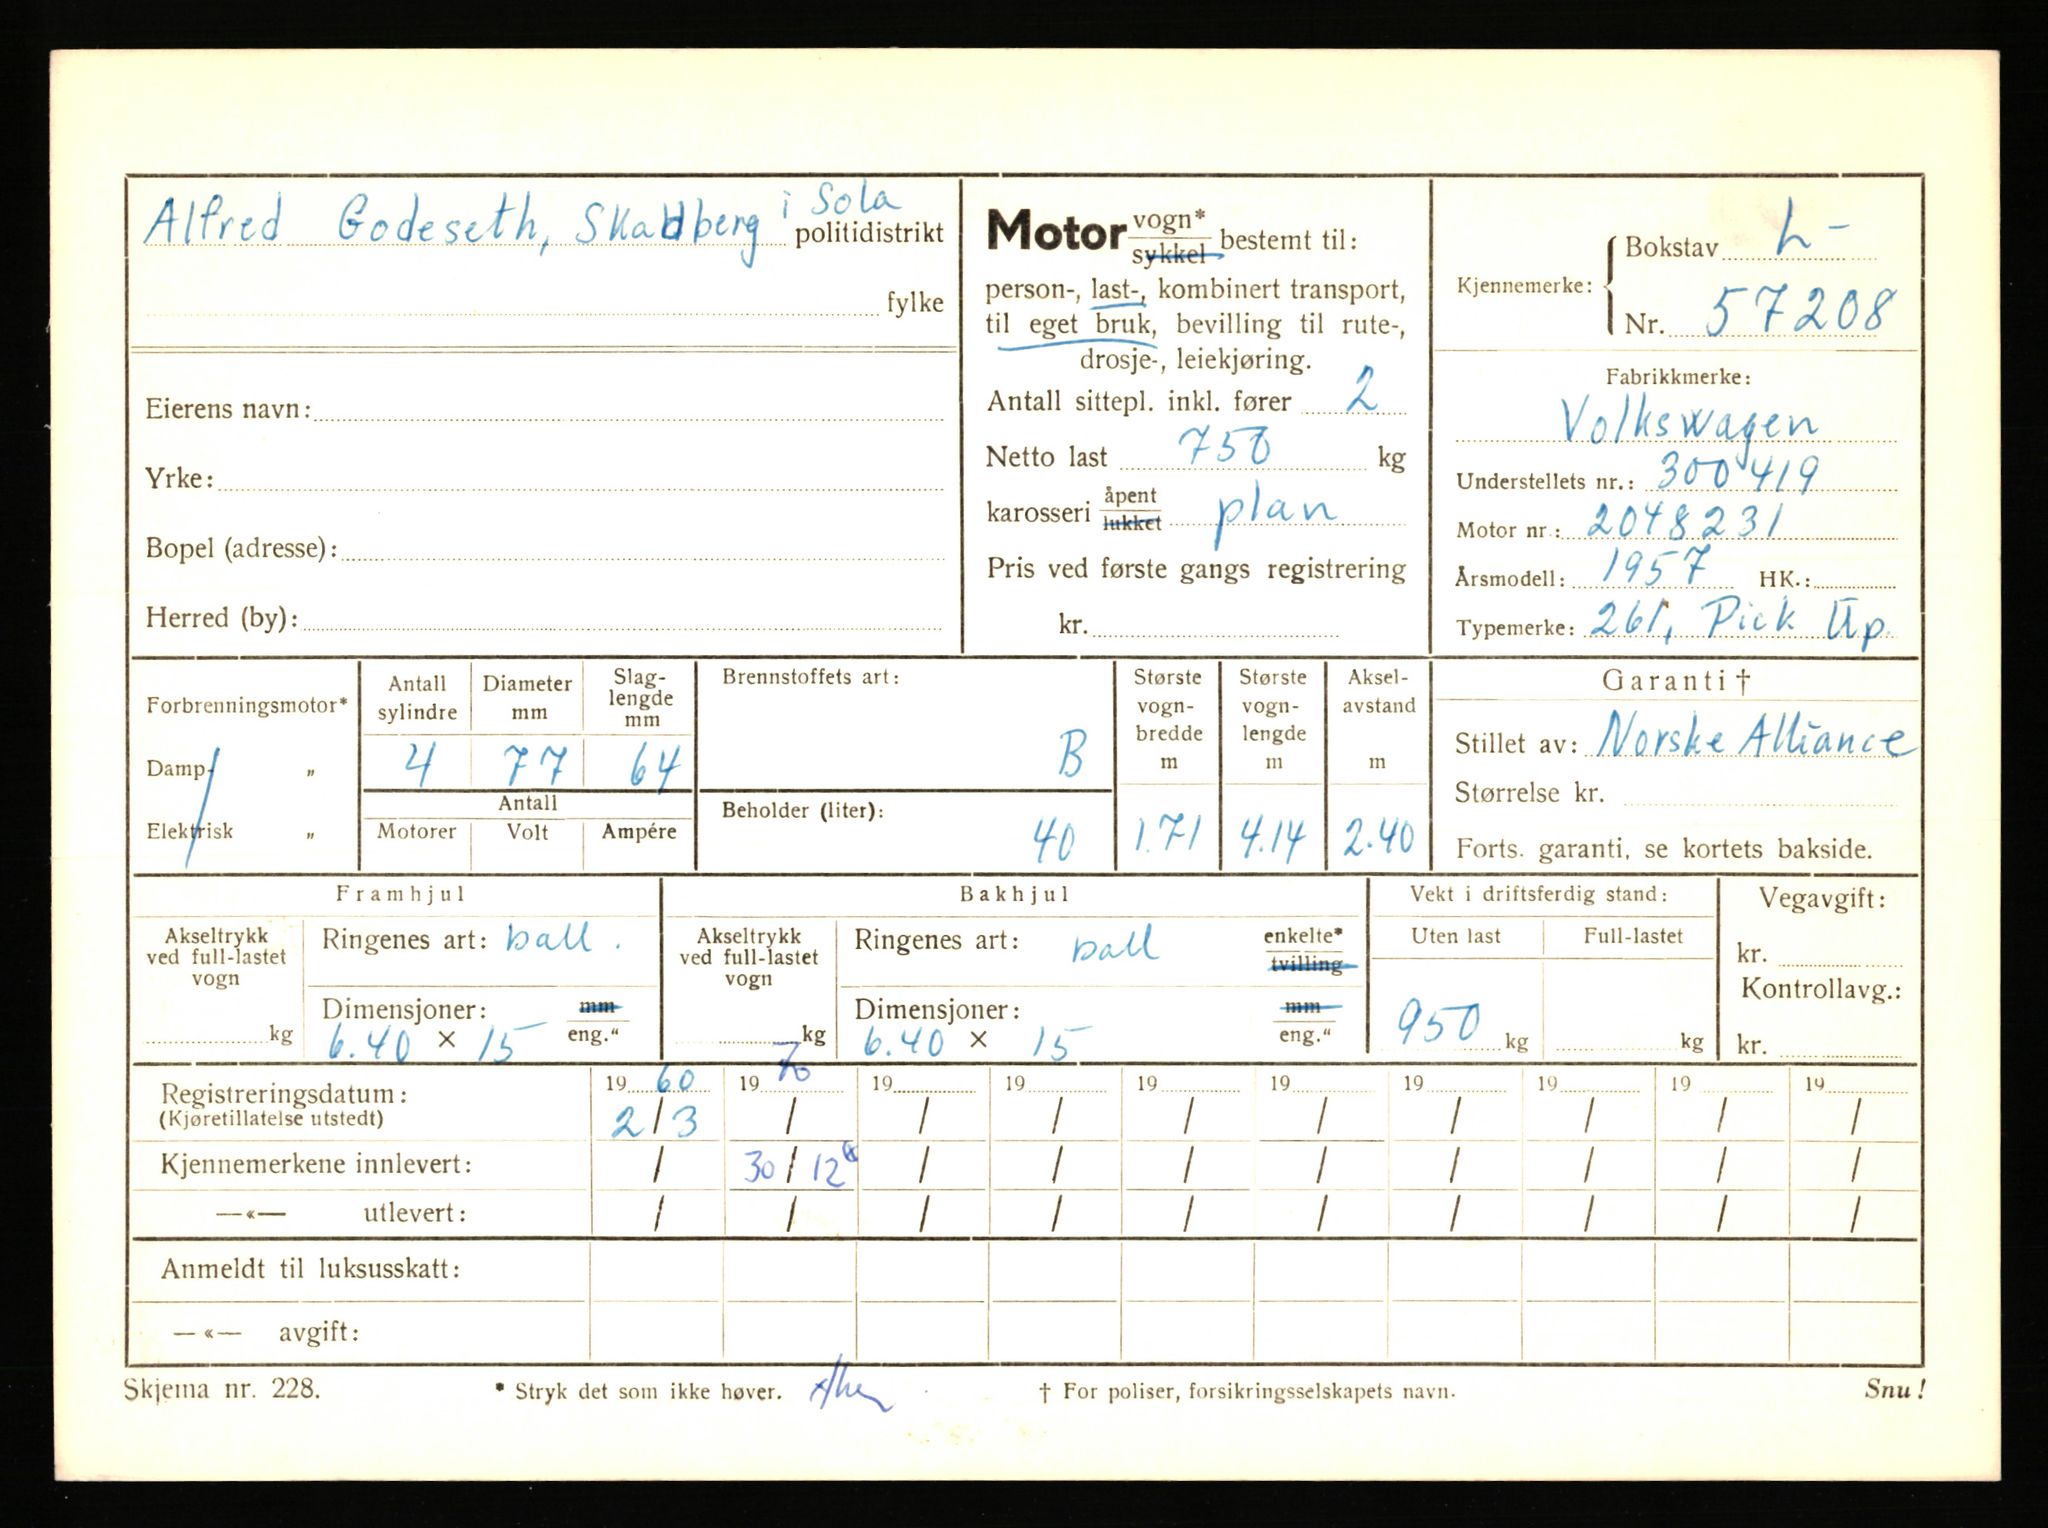 Alfred Godeseth, Skadberg i Sola politidistrikt
fylke
Eierens navn:
Yrke:
Bopel (adresse):
Herred (by):
Motor vogn* sykkel bestemt til:
person-, last-, kombinert transport,
til eget bruk, bevilling til rute-,
drosje-, leiekjøring.
Antall sittepl. inkl. fører 2
Netto last 750 kg
karosseri åpent lukket plan
Pris ved første gangs registrering
kr.
Kjennemerke: Bokstav L-
Nr. 57208
Fabrikkmerke:
Volkswagen
Understellets nr.: 300419
Motor nr.: 2048231
Årsmodell: 1957 HK.:
Typemerke: 261, Pick Up.
Forbrenningsmotor*
Damp- „
Elektrisk „
Antall sylindre
4
Diameter mm
77
Slag-lengde mm
64
Antall
Motorer Volt Ampére
Brennstoffets art:
B
Beholder (liter):
40
Største vogn-bredde m
1.71
Største vogn-lengde m
4.14
Aksel-avstand m
2.40
Garanti †
Stillet av: Norske Alliance
Størrelse kr.
Forts. garanti, se kortets bakside.
Framhjul
Akseltrykk ved full-lastet vogn
kg
Ringenes art: ball.
Dimensjoner: mm
6.40 × 15 eng.“
Bakhjul
Akseltrykk ved full-lastet vogn
kg
Ringenes art: ball enkelte* tvilling
Dimensjoner: mm
6.40 × 15 eng.“
Vekt i driftsferdig stand:
Uten last Full-lastet
950 kg kg
Vegavgift:
kr.
Kontrollavg.:
kr.
Registreringsdatum: 19 60 19 70 19 19 19 19 19 19 19 19
(Kjøretillatelse utstedt) 2/3 / / / / / / / / /
Kjennemerkene innlevert: / 30/12 / / / / / / / /
—«— utlevert: / / / / / / / / / /
Anmeldt til luksusskatt:
—«— avgift:
Skjema nr. 228. * Stryk det som ikke høver. † For poliser, forsikringsselskapets navn. Snu!